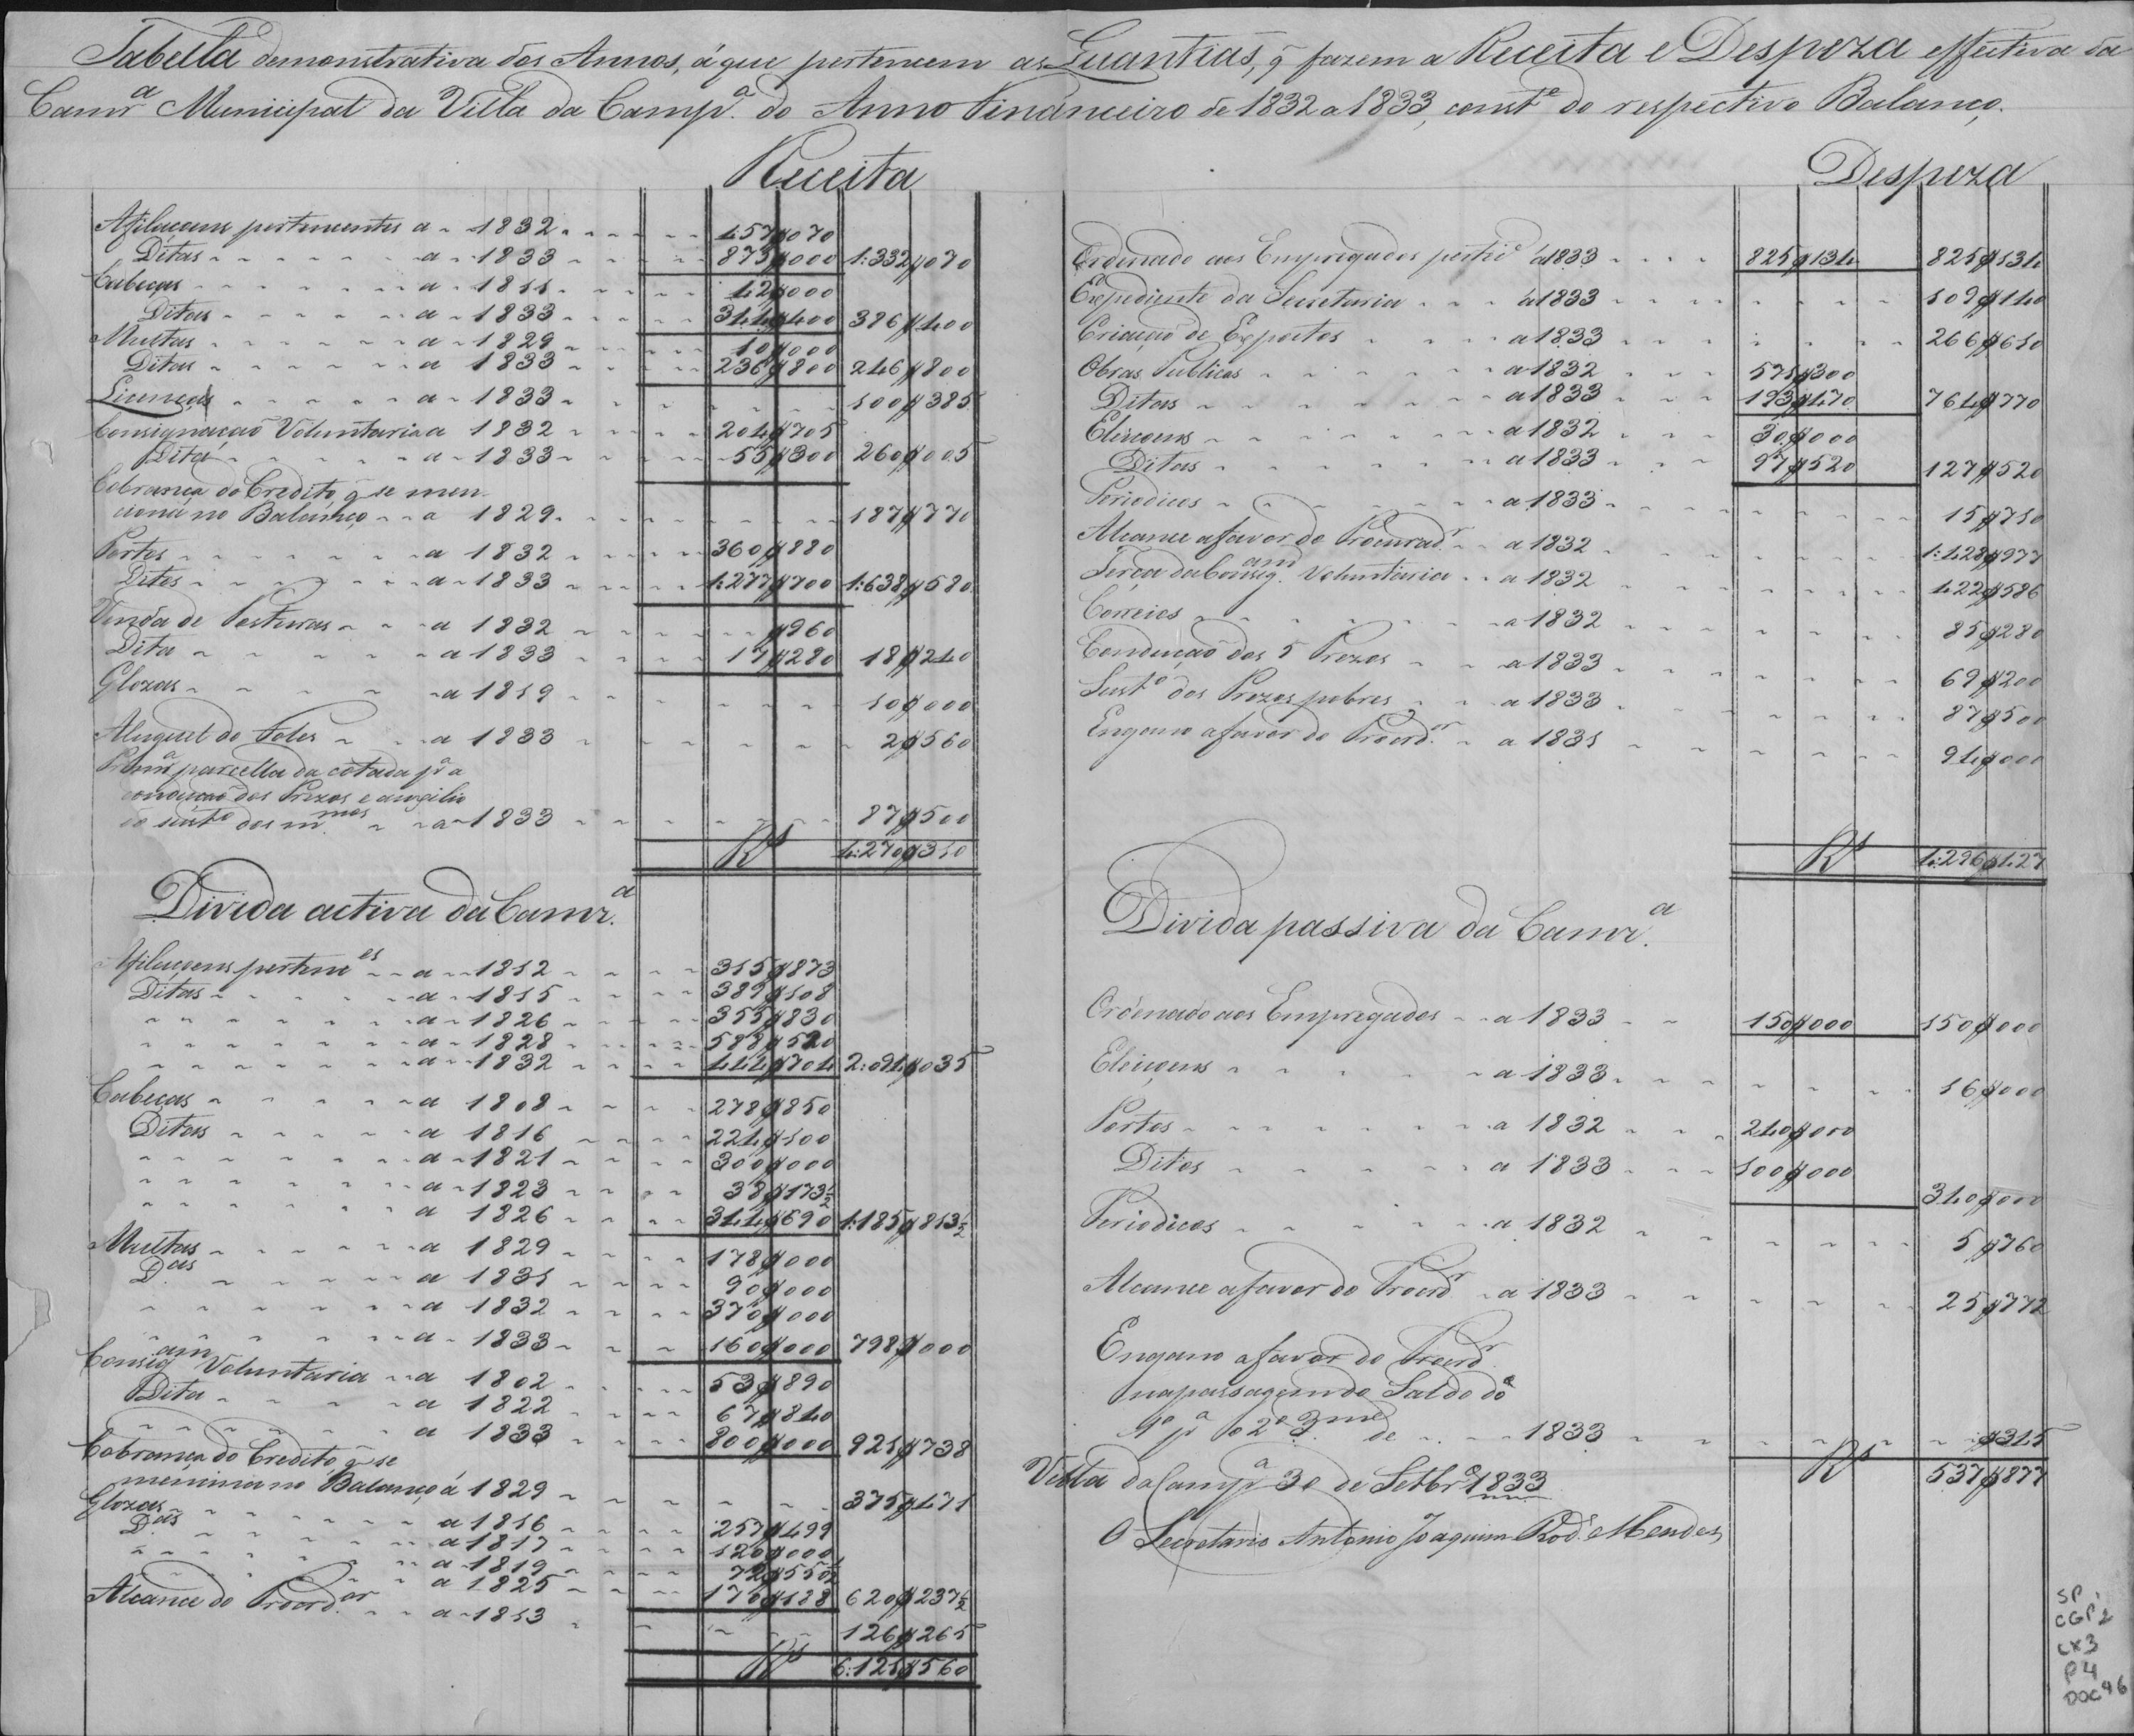 Tabella demonstrativa dos Annos, á que pertencem as Quantias, q̃ fazem a Receita e Despeza effectiva da
Camrª Municipal da Villa da Campª. do Anno Financeiro de 1832 a 1833, constᵉ do respectivo Balanço.
Receita
Afilaçoens pertencentes a 1832 457$070
Ditas a 1833 875$000 1:332$070
Cabeças a 1811 42$000
Ditas a 1833 344$400 386$400
Multas a 1829 10$000
Ditas a 1833 236$800 246$800
Licenças a 1833 100$385
Consignação Voluntaria a 1832 204$705
Dita a 1833 55$300 260$005
Cobrança do Credito q̃ se men
ciona no Balanço a 1829 187$770
Portos a 1832 360$880
Ditos a 1833 1:277$700 1:638$580
Venda de Posturas a 1832 $960
Dita a 1833 17$280 18$240
Glozas a 1819 10$000
Aluguel do Potes a 1833 2$560
Primª parcella da cotada pª a
condução dos Prezos e auxilio
do sustº dos mmos a 1833 87$500
Rs 4:270$310
Divida activa da Camrª.
Afilaçoens pertences a 1812 315$873
Ditas a 1815 389$108
a 1826 355$830
a 1828 588$520
a 1832 444$704 2:094$035
Cabeças a 1808 278$850
Ditas a 1816 224$100
a 1821 300$000
a 1823 38$173½
a 1826 344$690 1:185$813½
Multas a 1829 178$000
Das a 1831 90$000
a 1832 370$000
a 1833 160$000 798$000
Consigam Voluntaria a 1802 53$890
Dita a 1822 67$840
a 1833 800$000 921$738
Cobrança do Credito q̃ se
menciona no Balanço á 1829 375$471
Glozas a 1816 257$499
Das a 1817 120$000
a 1819 72$550½
a 1825 170$188 620$237½
Alcance do Procrdor a 1813 126$265
Rs 6:121$560
Despeza
Ordenado aos Empregados pertᵉ a 1833 825$134 825$134
Expediente da Secretaria a 1833 109$140
Criação de Expostos a 1833 266$610
Obras Publicas a 1832 571$300
Ditas a 1833 193$470 764$770
Eleiçoens a 1832 30$000
Ditas a 1833 97$520 127$520
Periodicos a 1833 15$710
Alcance a favor do Procuradr a 1832 1:428$977
Terça da Consigam Voluntaria a 1832 422$586
Correios a 1832 85$280
Condução dos 5 Prezos a 1833 69$200
Sustº dos Prezos pobres a 1833 87$500
Engano a favor do Procrdr. a 1831 94$000
Rs 4:296$427
Divida passiva da Camrª.
Ordenado aos Empregados a 1833 150$000 150$000
Eleiçoens a 1833 16$000
Portos a 1832 240$000
Ditos a 1833 100$000
340$000
Periodicos a 1832 5$760
Alcance a favor do Procrdr a 1833 25$772
Engano a favor do Procrdr
na passagem do Saldo do
1º pª o 2º 3me de 1833 $345
Rs 537$877
Villa da Campª 30 de Setbrº 1833
O Secretario Antonio Joaquim Rods Mendes
SP.
CGP2
CX3
P4
DOC 46